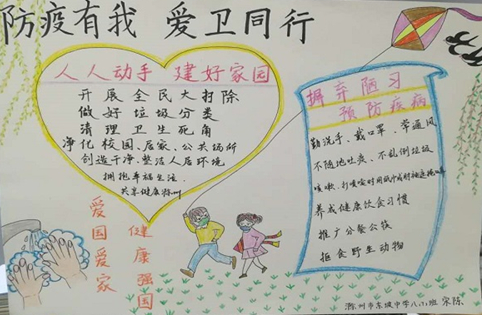 防疫有我 爱卫同行
人人动手 建好家园
开展全民大扫除
做好垃圾分类
清理卫生死角
净化校园、居家、公共场所
创造干净、整洁人居环境
拥抱幸福生活
共享健康
摒弃陋习
预防疾病
勤洗手、戴口罩、常通风
不随地吐痰、不乱倒垃圾
咳嗽、打喷嚏时用纸巾或肘袖遮掩
养成健康饮食习惯
推广分餐公筷
拒食野生动物
爱国爱家
健康强国
滁州市东坡中学八(7)班 宋陈